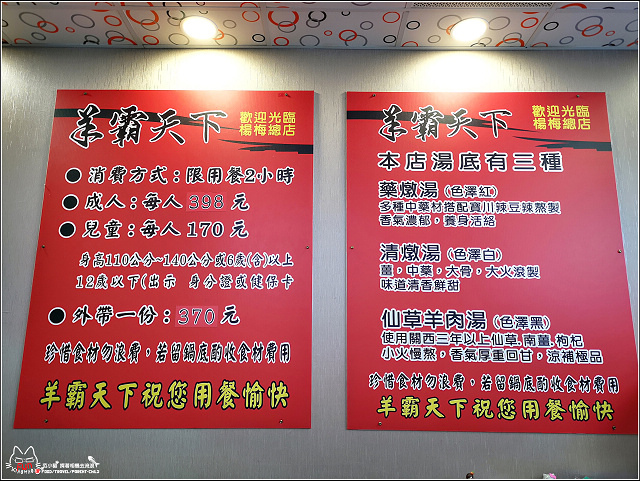 羊霸天下
歡迎光臨
楊梅總店
●消費方式:限用餐2小時
●成人:每人 398 元
●兒童:每人 170 元
身高110公分~140公分或6歲(含)以上
12歲以下(出示 身分證或健保卡
●外帶一份:370元
珍惜食材勿浪費,若留鍋底酌收食材費用
羊霸天下祝您用餐愉快
羊霸天下
歡迎光臨
楊梅總店
本店湯底有三種
藥燉湯(色澤紅)
多種中藥材搭配寶川辣豆辣熬製
香氣濃郁,養身活絡
清燉湯(色澤白)
薑,中藥,大骨,大火滾製
味道清香鮮甜
仙草羊肉湯(色澤黑)
使用關西三年以上仙草.南薑.枸杞
小火慢熬,香氣厚重回甘,涼補極品
珍惜食材勿浪費,若留鍋底酌收食材費用
羊霸天下祝您用餐愉快
FOOD/TRAVEL/PARENT-CHILD